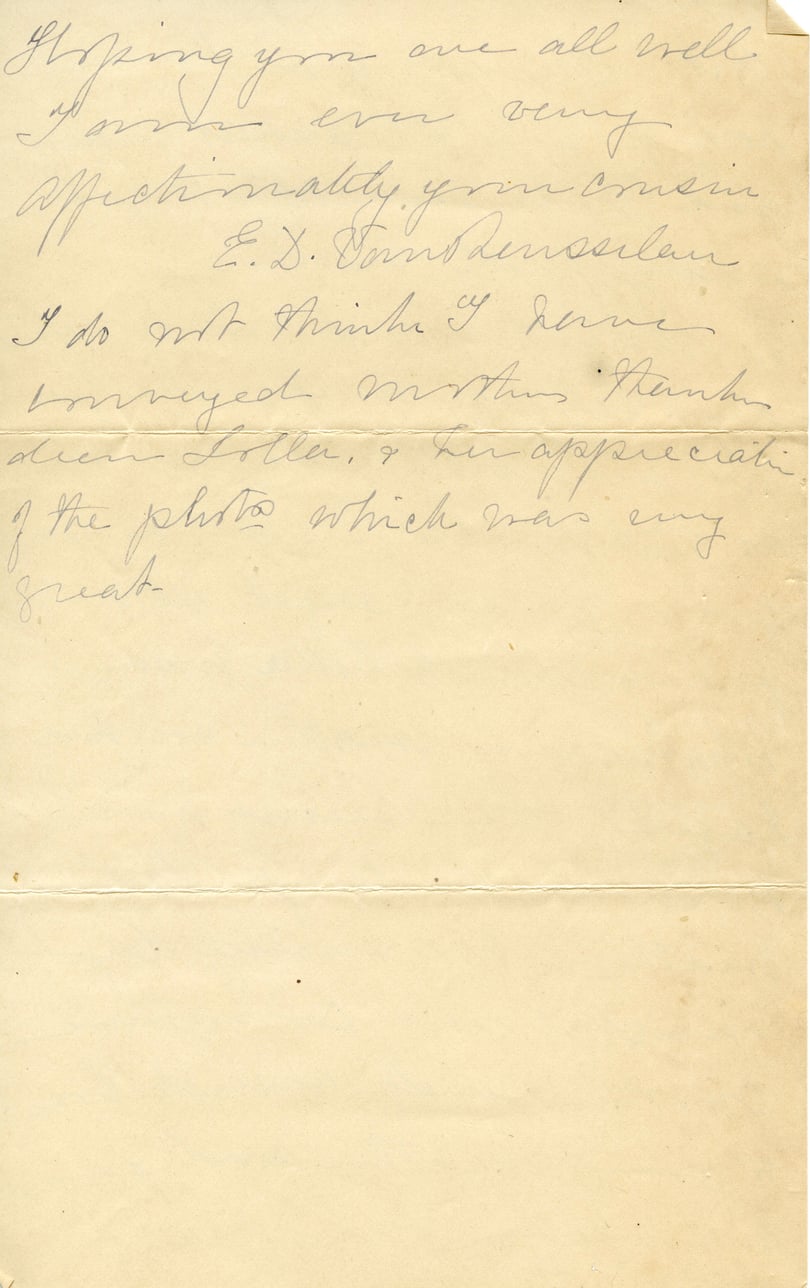 Hoping you are all well
I am ever very
affectionately your cousin
E. D. Van Rensselaer
I do not think I have
conveyed mothers thanks
dear Lolla, & her appreciation
of the photos which was very
great